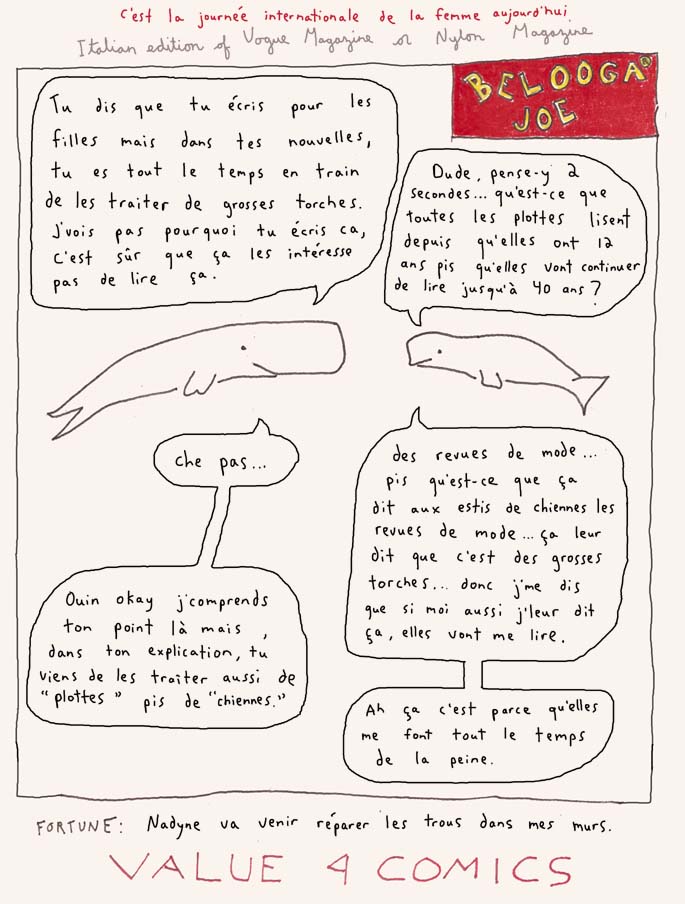 c'est la journée internationale de la femme aujourd'hui
Italian edition of Vogue Magazine or Nylon Magazine
BELOOGA
JOE
Tu dis que tu écris pour les
filles mais dans tes nouvelles,
tu es tout le temps en train
de les traiter de grosses torches.
J'vois pas pourquoi tu écris ca,
c'est sûr que ça les intéresse
pas de lire ça.
Dude, pense-y 2
secondes... qu'est-ce que
toutes les plottes lisent
depuis qu'elles ont 12
ans pis qu'elles vont continuer
de lire jusqu'à 40 ans?
che pas...
des revues de mode...
pis qu'est-ce que ça
dit aux estis de chiennes les
revues de mode... ça leur
dit que c'est des grosses
torches... donc j'me dis
que si moi aussi j'leur dit
ça, elles vont me lire.
Ouin okay j'comprends
ton point là mais,
dans ton explication, tu
viens de les traiter aussi de
"plottes" pis de "chiennes."
Ah ça c'est parce qu'elles
me font tout le temps
de la peine.
FORTUNE: Nadyne va venir réparer les trous dans mes murs.
VALUE 4 COMICS